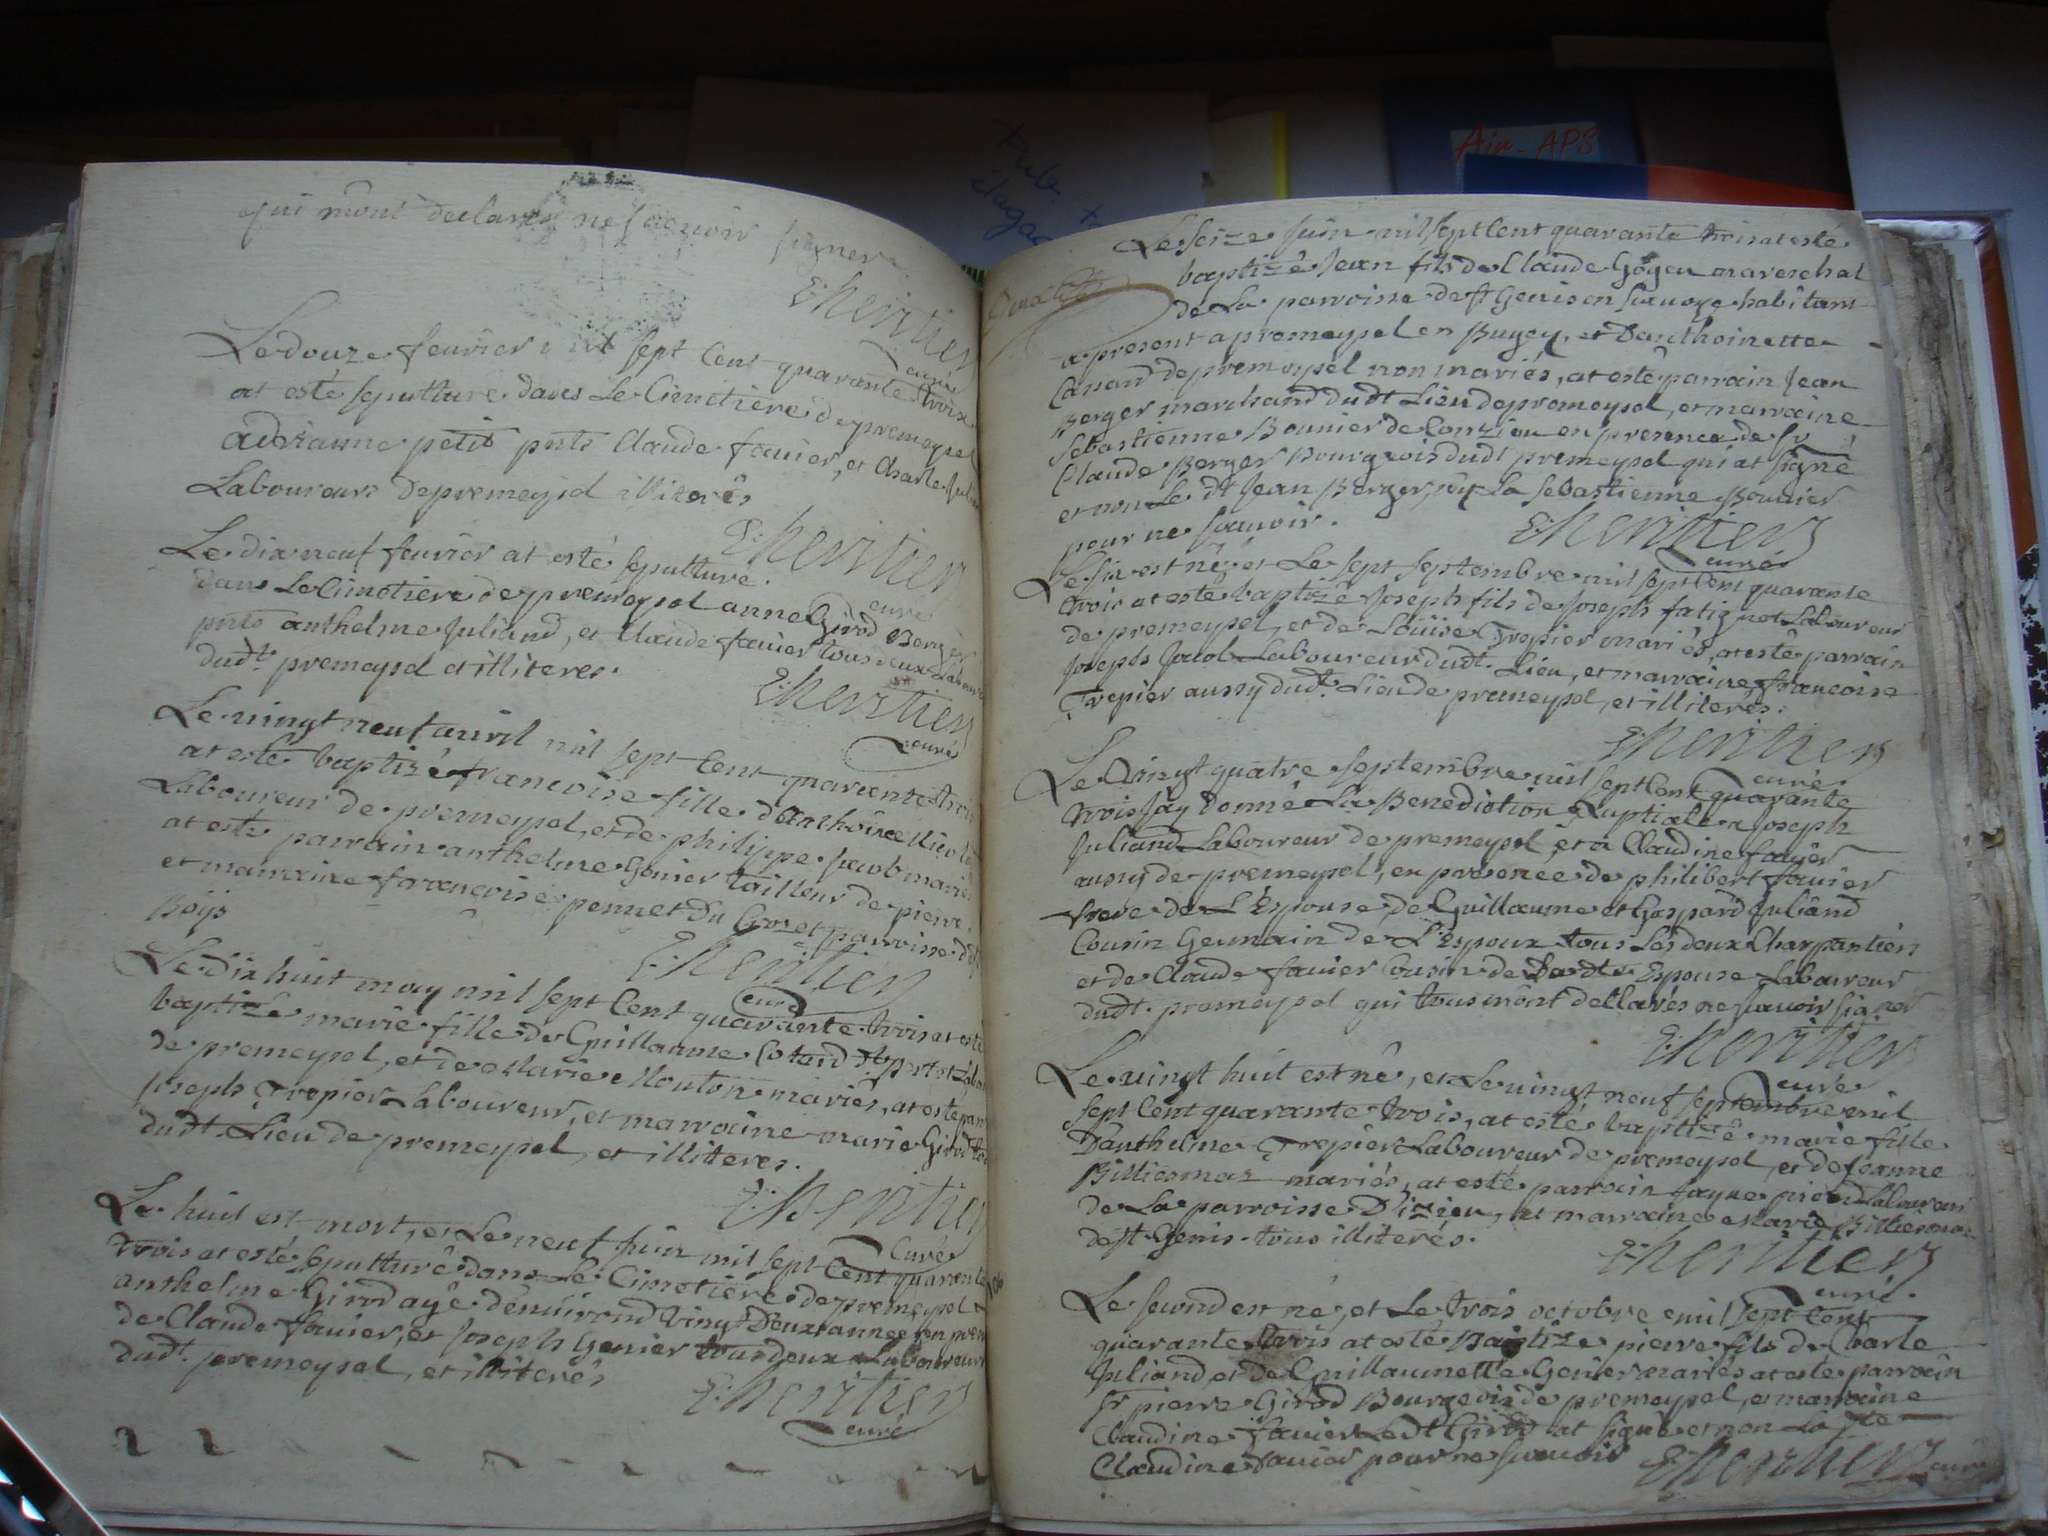 qui mônt declarés ne scauoir signer
E: heritier
curé
Le douze feurier mil sept Cent quarante trois
at esté sepulturé dans Le Cimetiere de premeysel
adrianne petit pnts Claude fauier, et Charle Juliand
Laboureurs de premeysel illiterés
E: heritier
curé
Le dix neuf feurier at esté sepulturé
dans Le Cimetiere de premeysel anne Girod Berger
pnts anthelme Juliand, et Claude fauier tous deux Labour
dudt. premeysel et illiteres.
E: heritier
curé
Le vingt neuf auril mil sept Cent quarante trois
at esté baptizé francoise fille d'anthoine
Laboureur de premeysel, et de philippe Jacob mariés
at esté parrain anthelme Genier tailleur de pierre
et marraine francoise pennet du parroisse
E: heritier
curé
Le dix huit may mil sept Cent quarante trois at esté
baptizé marie fille de Guillaume
de premeysel, et de Marie Mouton mariés, at esté parr
Joseph Trepier Laboureur, et marraine marie Girod
dudt. Lieu de premeysel, et illiteres.
E: heritier
Curé
Le huit est mort, et Le neuf juin mil sept Cent quarante
trois at esté sepulturé dans Le Cimetiere de premeysel
anthelme Girod agé d'enuirond Vingt Deux année en pre
de Claude fauier, et Joseph Genier tous deux Laboureurs
dudt. premeysel, et illiterés
E: heritier
curé
Le seize juin mil sept Cent quarante trois at esté
baptizé Jean fils de Claude Goyen mareschal
de La parroisse de st Genis en sauoye habitant
a present a premeysel en Bugey, et D'anthoinette
Canard de premeysel non mariés, at esté parrain Jean
Berger marchand dudt Lieu de premeysel, et marraine
Sebastienne Bounier de Conzieu en presence de sr
Claude Berger Bourgeois dudt premeysel qui at signé
et non Le dt Jean Berger, ny La sebastienne Bounier
pour ne scauoir.
E: heritier
curé
Le six est né, et Le sept septembre mil sept Cent quarante
trois at esté baptizé Joseph fils de Joseph fatignet Laboureur
de premeysel, et de Loüise Trepier mariés, at esté parrain
Joseph Laboureur dudt. Lieu, et marraine francoise
Trepier aussy dudt. Lieu de premeysel, et illiteres.
E: heritier
curé
Le Vingt quatre septembre mil sept Cent quarante
trois J'ay donné La Benediction Nuptiale a Joseph
Juliand Laboureur de premeysel, et a Claudine fauier
aussy de premeysel, en presence de philibert fauier
frere de L'Espouse de Guillaume et Gaspard Juliand
Cousin Germain de L'Espoux tous Les deux Charpantiers
et de Claude fauier Cousin de Ladte Espouse Laboureur
dudt. premeysel qui tous mônt dellarés ne scauoir signer
E: heritier
curé
Le vingt huit est né, et Le vingt neuf septembre mil
sept Cent quarante trois, at esté baptizé marie fille
D'anthelme Trepier Laboureur de premeysel, et de Jeanne
Billiemaz mariés, at esté parrain Jayme
de La parroisse D'izieu, et marraine Marie Billiemaz
de st. Genis tous illiterés.
E: heritier
curé.
Le second est né, et Le trois octobre mil sept Cent
quarante trois at esté Baptizé pierre fils de Charle
Juliand, et de Guillaumette Genier mariés at esté parrain
sr pierre Girod Bourgeois de premeysel, et marraine
Claudine fauier Le dt Girod at signé et non La dte
Claudine fauier pour ne scauoir
E: heritier curé
Air-APS